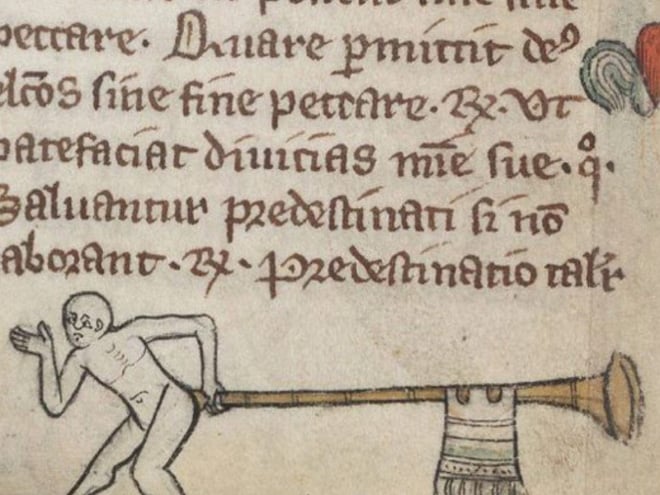 peccare. Quare ꝑmittit deꝰ
elcōs sine fine peccare. ℞. Vt
patefaciat diuicias mīe sue. qͦ.
Saluantur predestinati si nō
laborant. ℞. Predestinatio